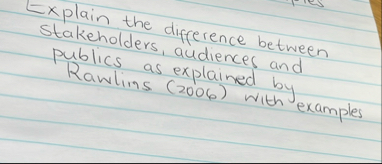 Explain the difference between
stakeholders, audiences and
publics as explained by
Rawlins (2006) with examples